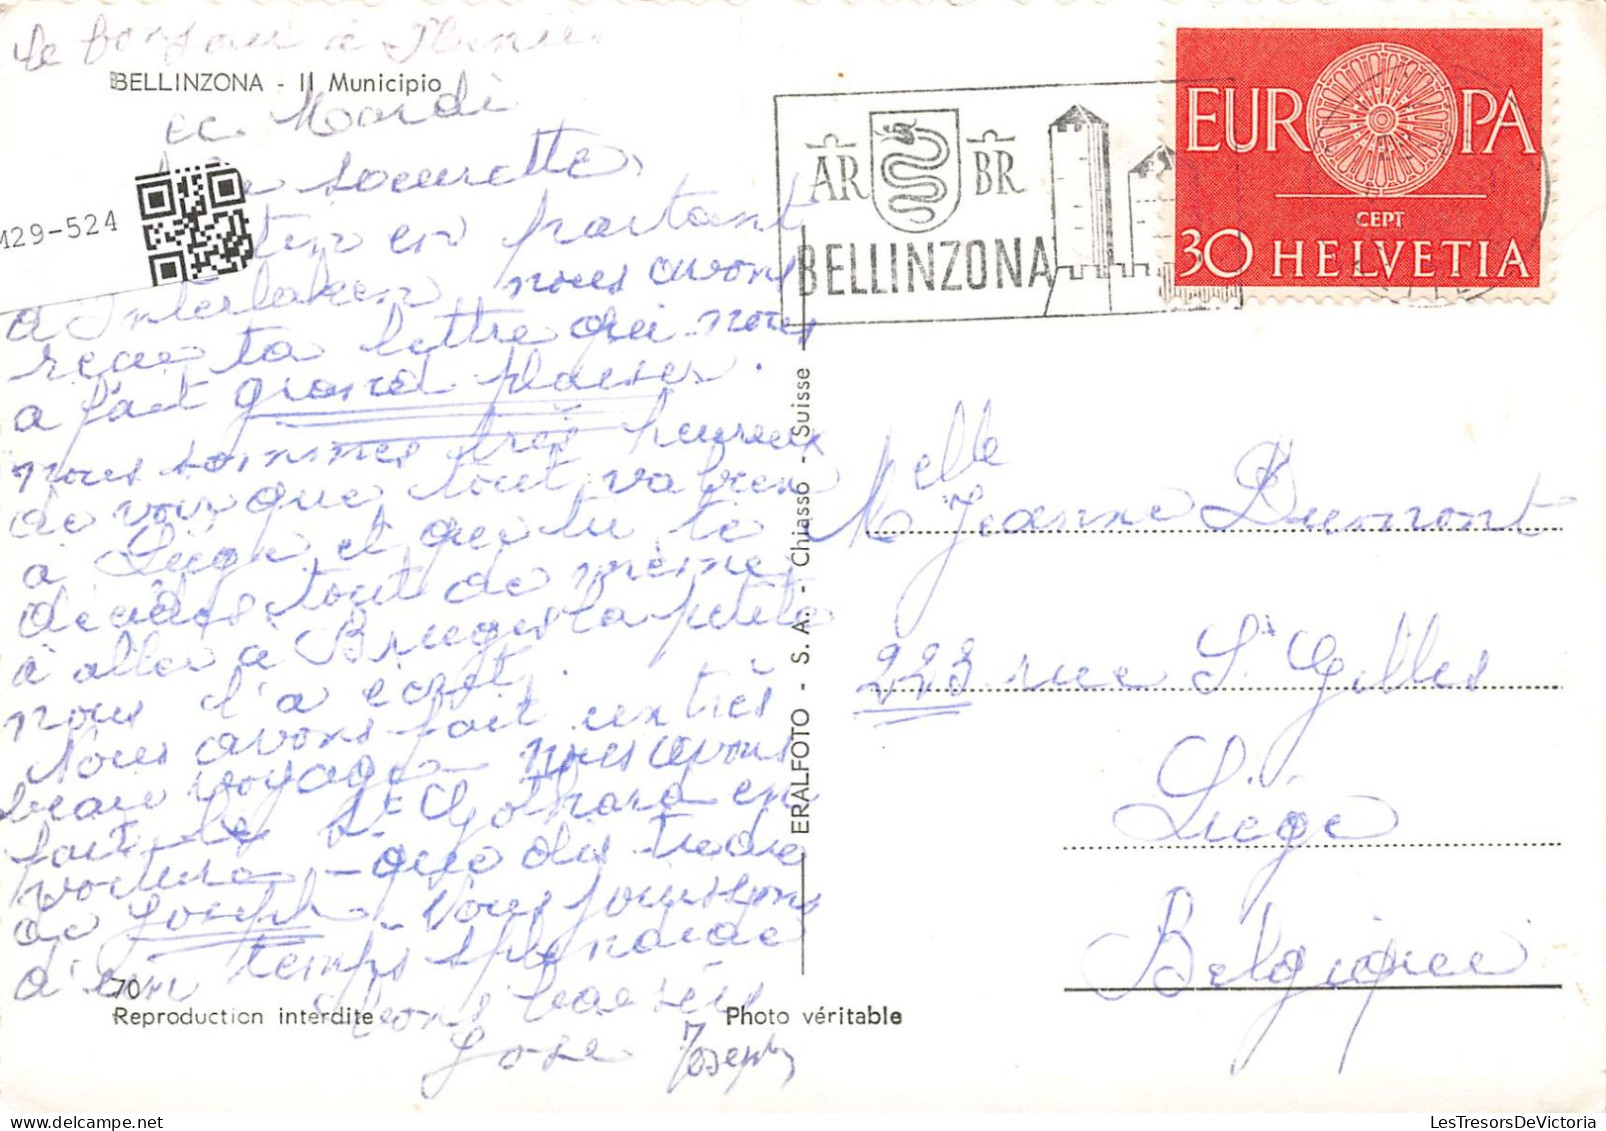 Le bonjour à
BELLINZONA - Il Municipio
ce Mardi
soeurette,
M29-524
en partant
a Interlaken nous avons
recu ta lettre qui nous
a fait grand plaisir.
nous sommes très heureux
de voir que tout va bien
a Liège et que tu te
décides tout de même
à aller à Bruges la petite
nous l'a ecrit.
Nous avons fait un très
beau voyage nous avons
fait le St Gothard en
voiture - que dis tu de ça
de Joseph - Nous jouissons
d'un temps splendide
70
Reproduction interdite
bons baisers
Jose Joseph
Photo véritable
ERALFOTO - S. A. - Chiasso - Suisse
AR BR
BELLINZONA
EUROPA
CEPT
30 HELVETIA
Melle Jeanne Dumont
223 rue St Gilles
Liège
Belgique
LesTresorsDeVictoria.com